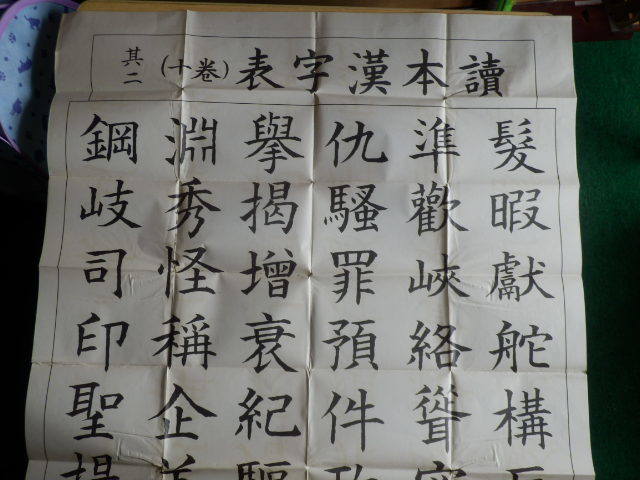 讀本漢字表（卷十）其二
髮暇獻舵構
準歡峽絡聳
仇騷罪預件
擧揭增衰紀
淵秀怪稱企
鋼岐司印聖